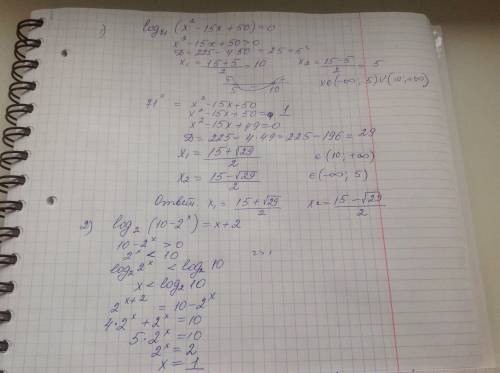 1) log₇₁ (x² - 15x + 50) = 0
x² - 15x + 50 > 0
D = 225 - 4·50 = 25 = 5²
x₁ = (15+5)/2 = 10    x₂ = (15-5)/2 = 5
+ - +
5 10    x ∈ (-∞; 5) ∪ (10; +∞)
71⁰ = x² - 15x + 50
x² - 15x + 50 = 1
x² - 15x + 49 = 0
D = 225 - 4·49 = 225 - 196 = 29
x₁ = (15+√29)/2    ∈ (10; +∞)
x₂ = (15-√29)/2    ∈ (-∞; 5)
Ответ x₁ = (15+√29)/2    x₂ = (15-√29)/2
2) log₂ (10 - 2ˣ) = x + 2
10 - 2ˣ > 0
2ˣ < 10
log₂ 2ˣ < log₂ 10
x < log₂ 10
2ˣ⁺² = 10 - 2ˣ
4·2ˣ + 2ˣ = 10
5·2ˣ = 10
2ˣ = 2
x = 1